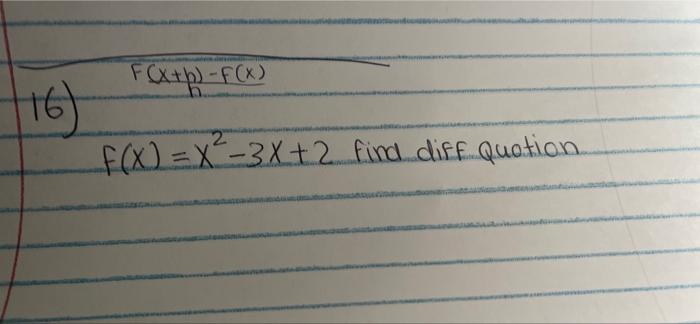 F(x+h)-F(x)
h
16)
f(x)=x²-3x+2 find diff quotion